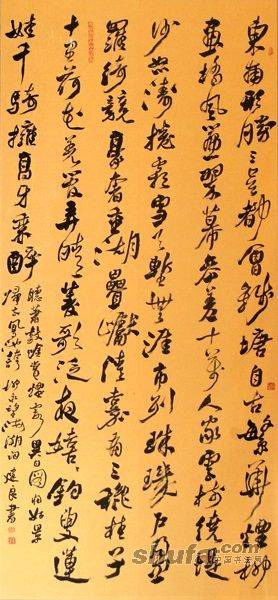 東南形勝三吳都會錢塘自古繁華煙柳
畫橋風簾翠幕參差十萬人家雲樹繞堤
沙怒濤捲霜雪天塹無涯市列珠璣戶盈
羅綺競豪奢重湖疊巘清嘉有三秋桂子
十里荷花羌管弄晴菱歌泛夜嬉嬉釣叟蓮
娃千騎擁高牙乘醉
聽蕭鼓吟賞煙霞異日圖將好景
歸去鳳池誇 柳永望海潮詞 建良書
shufa.com